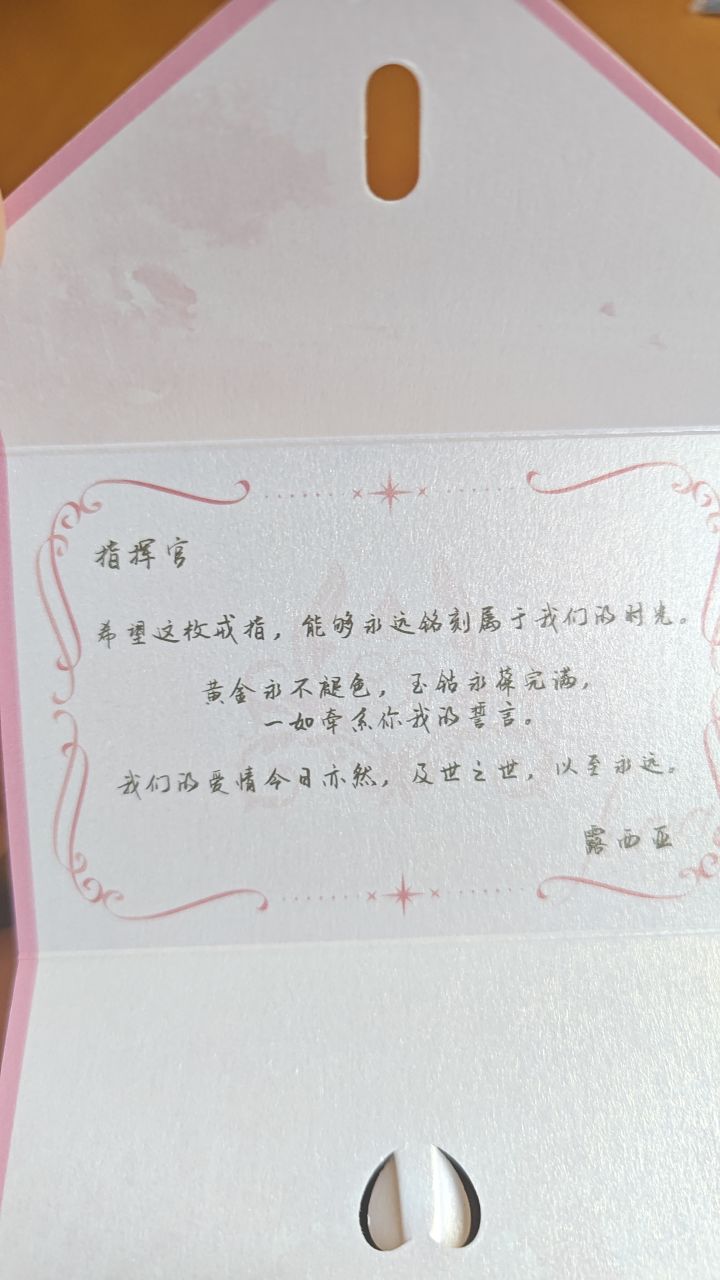 指挥官
希望这枚戒指，能够永远铭刻属于我们的时光。
黄金永不褪色，玉钻永葆完满，
一如牵系你我的誓言。
我们的爱情今日亦然，及世之世，以至永远。
露西亚